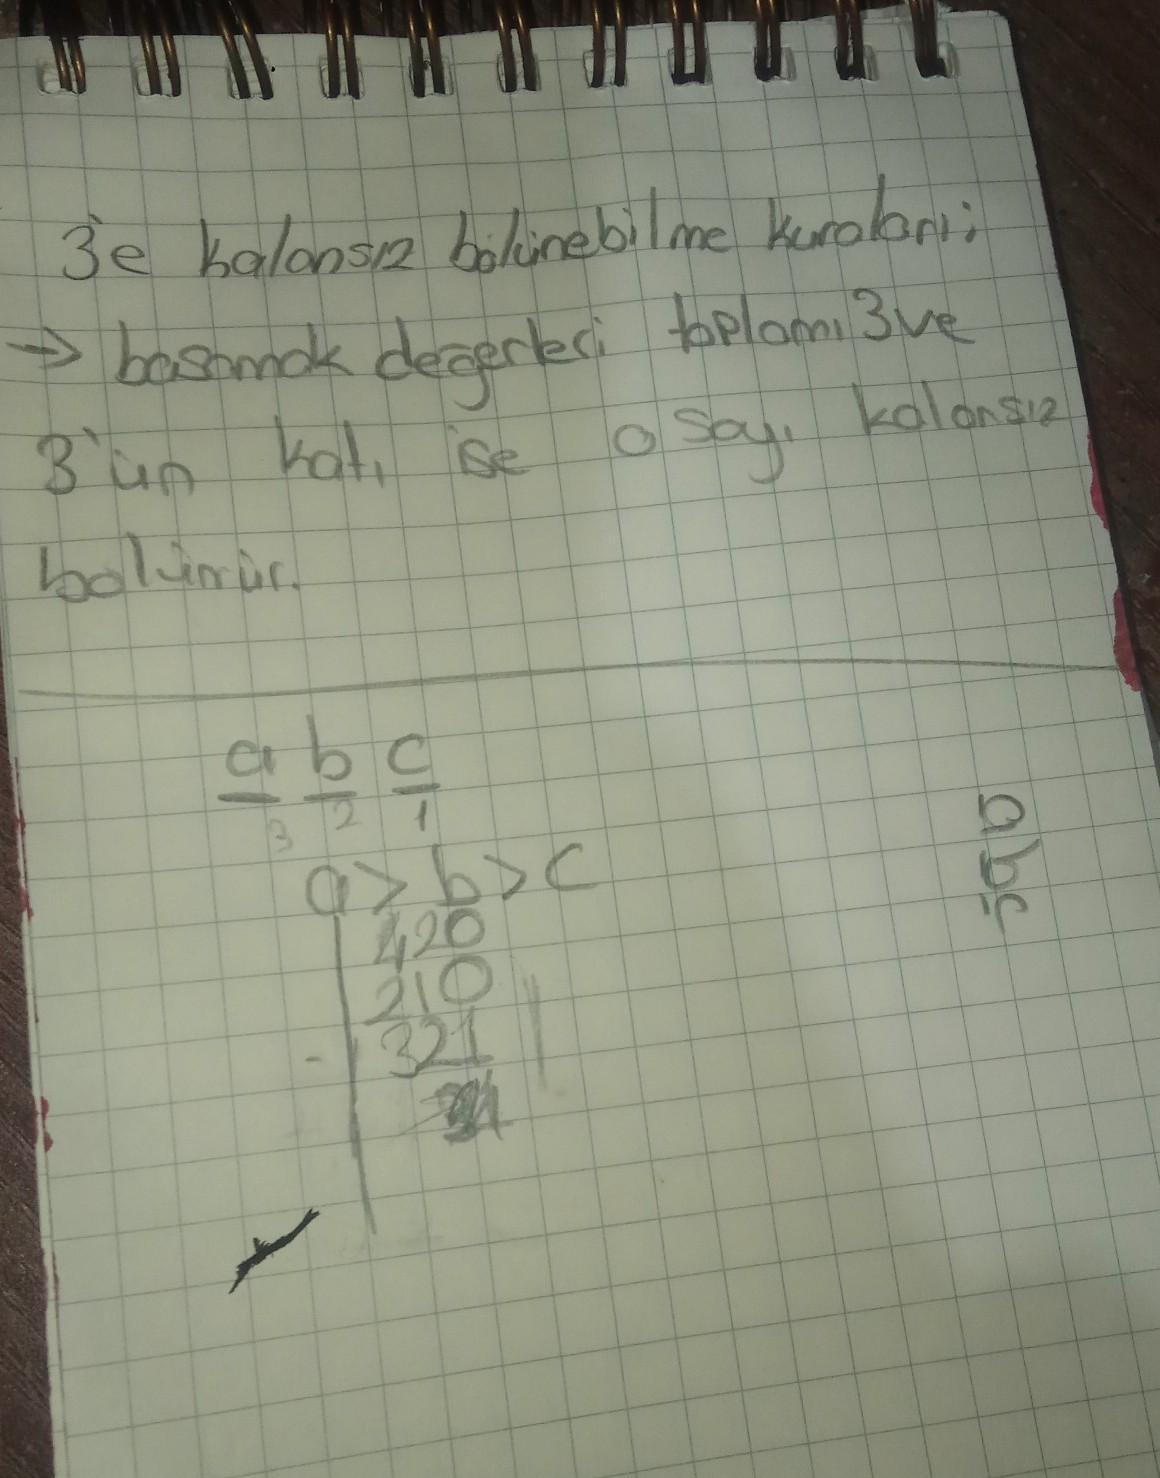 3'e kalansız bölünebilme kuralları:
→ basamak değerleri toplamı 3 ve
3'ün katı ise o sayı kalansız
bölünür.
a b c
3 2 1
a > b > c
420
210
321
abc